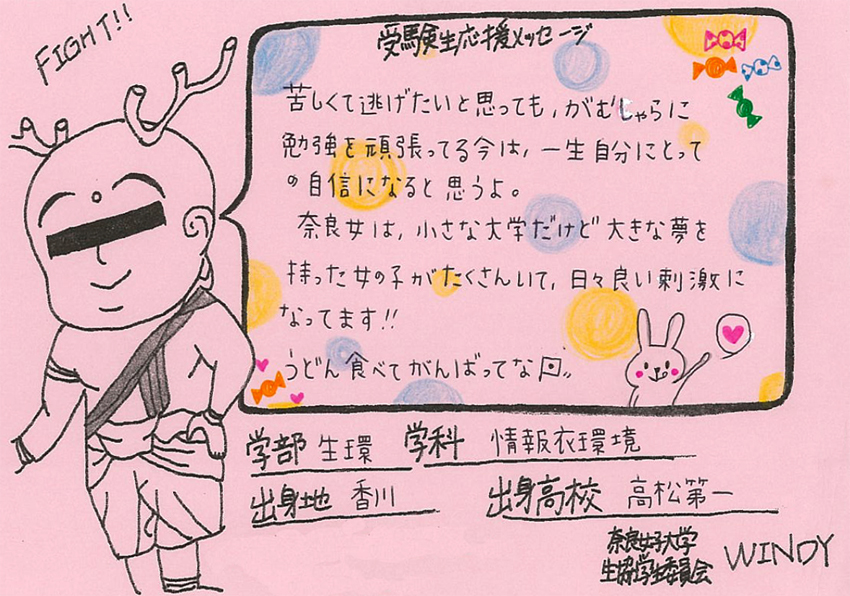 FIGHT!!
受験生応援メッセージ
苦しくて逃げたいと思っても、がむしゃらに
勉強を頑張ってる今は、一生自分にとって
の自信になると思うよ。
奈良女は、小さな大学だけど大きな夢を
持った女の子がたくさんいて、日々良い刺激に
なってます!!
うどん食べてがんばってな
学部 生環 学科 情報衣環境
出身地 香川 出身高校 高松第一
奈良女子大学
生協学生委員会 WINDY